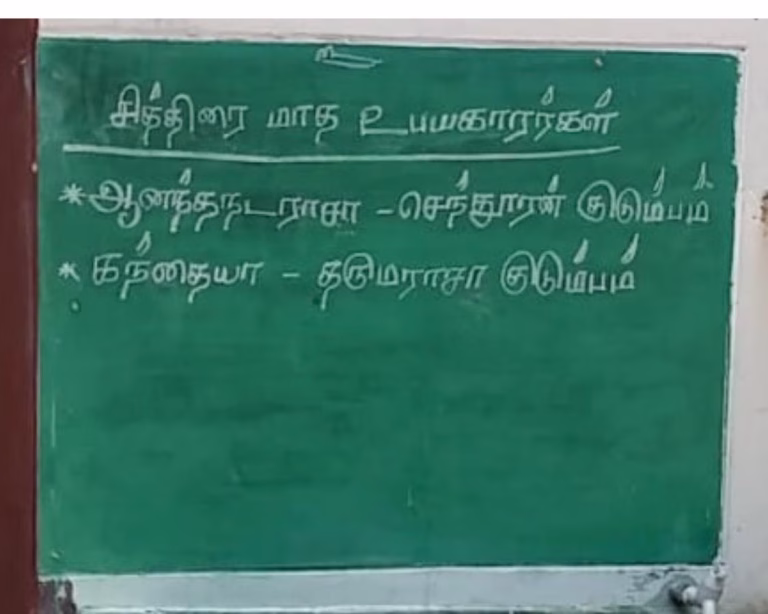 சித்திரை மாத உபயகாரர்கள்
* ஆனந்தநடராசா - செந்தூரன் குடும்பம்
* கந்தையா - தருமராசா குடும்பம்